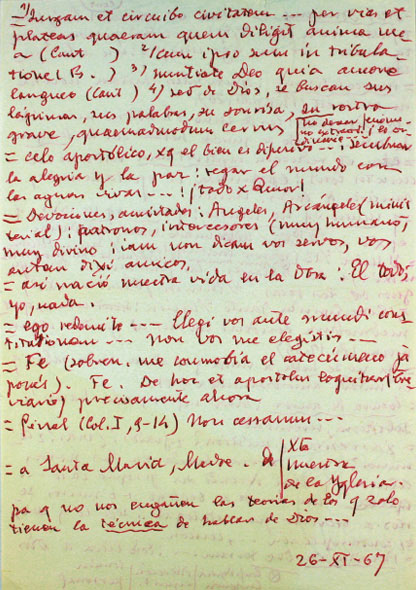 1) Surgam et circuibo civitatem --- per vias et
plateas quaeram quem diligit anima me-
a (Cant ) 2) Cum ipso sum in tribula-
tione (B. ) 3) nuntiate Deo quia amore
langueo (Cant) 4) sed de Dios, se buscan sus
lágrimas, sus palabras, su sonrisa, su rostro
grave, quemadmodum cervus
no extraord.!
= celo apostólico, xq el bien es
la alegría y la paz: regar el mundo con
las aguas vivas --- ¡todo x Amor!
= Devociones, amistades: Angeles, Arcangel (minis
terial): patronos, intercesores (muy humano,
muy divino: iam non dicam vos servos, vos
autem dixi amicos.
= así nació nuestra vida en la Obra: El todo,
yo, nada.
= ego redemi te --- Elegi vos ante mundi cons-
titutionem --- non vos me elegistis --
= Fe (sobren. me conmovía el catecismo ja
ponés). Fe. De hoc et apostolus loquitur (Bre
viario) precisamente ahora
= Final (Col. I, 9-14) Non cessamus ---
= a Santa María, Madre. de
Xto
nuestra
de la Yglesia.
pa q no nos engañen las teorías de los q solo
tienen la técnica de hablar de Dios ---
26-XI-67